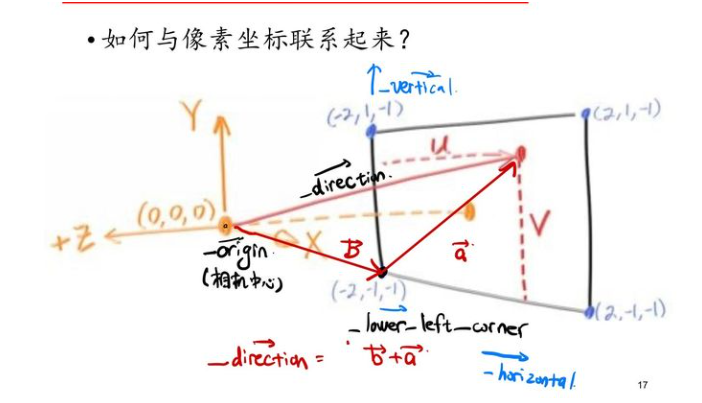 •如何与像素坐标联系起来?
_vertical
Y
(-2,1,-1)
(2,1,-1)
u
_direction
(0,0,0)
+Z
X
V
_origin
(相机中心)
B
a
(-2,-1,-1)
(2,-1,-1)
_lower_left_corner
_direction = b+a
_horizontal
17